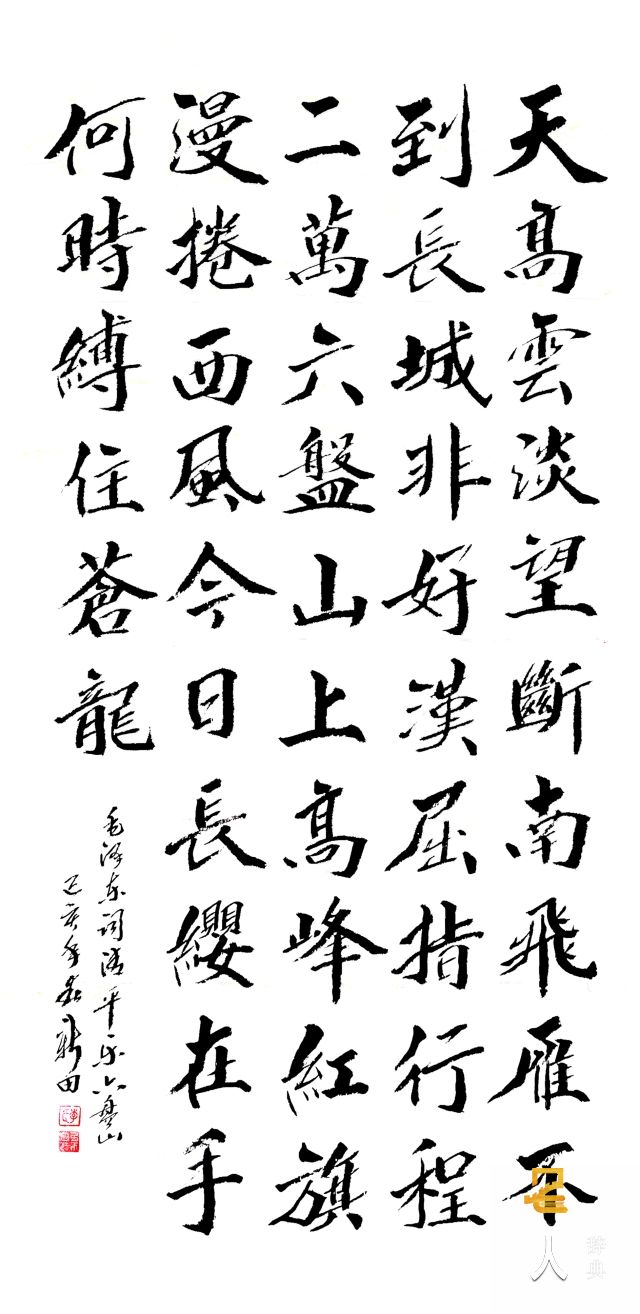 天髙雲淡望斷南飛雁不
到長城非好漢屈指行程
二萬六盤山上髙峰紅旗
漫捲西風今日長纓在手
何時縛住蒼龍
毛泽东词清平乐六盘山
己亥年新田
名人
辞典